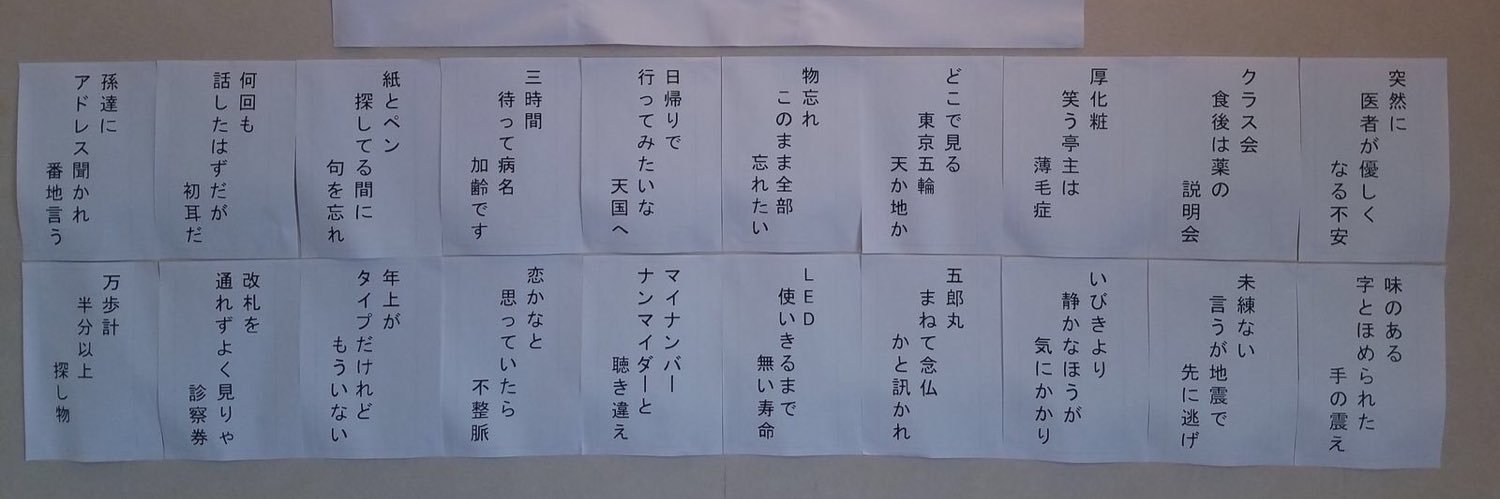 突然に
医者が優しく
なる不安
クラス会
食後は薬の
説明会
厚化粧
笑う亭主は
薄毛症
どこで見る
東京五輪
天か地か
物忘れ
このまま全部
忘れたい
日帰りで
行ってみたいな
天国へ
三時間
待って病名
加齢です
紙とペン
探してる間に
句を忘れ
何回も
話したはずだが
初耳だ
孫達に
アドレス聞かれ
番地言う
味のある
字とほめられた
手の震え
未練ない
言うが地震で
先に逃げ
いびきより
静かなほうが
気にかかり
五郎丸
まねて念仏
かと訊かれ
LED
使いきるまで
無い寿命
マイナンバー
ナンマイダーと
聴き違え
恋かなと
思っていたら
不整脈
年上が
タイプだけれど
もういない
改札を
通れずよく見りゃ
診察券
万歩計
半分以上
探し物